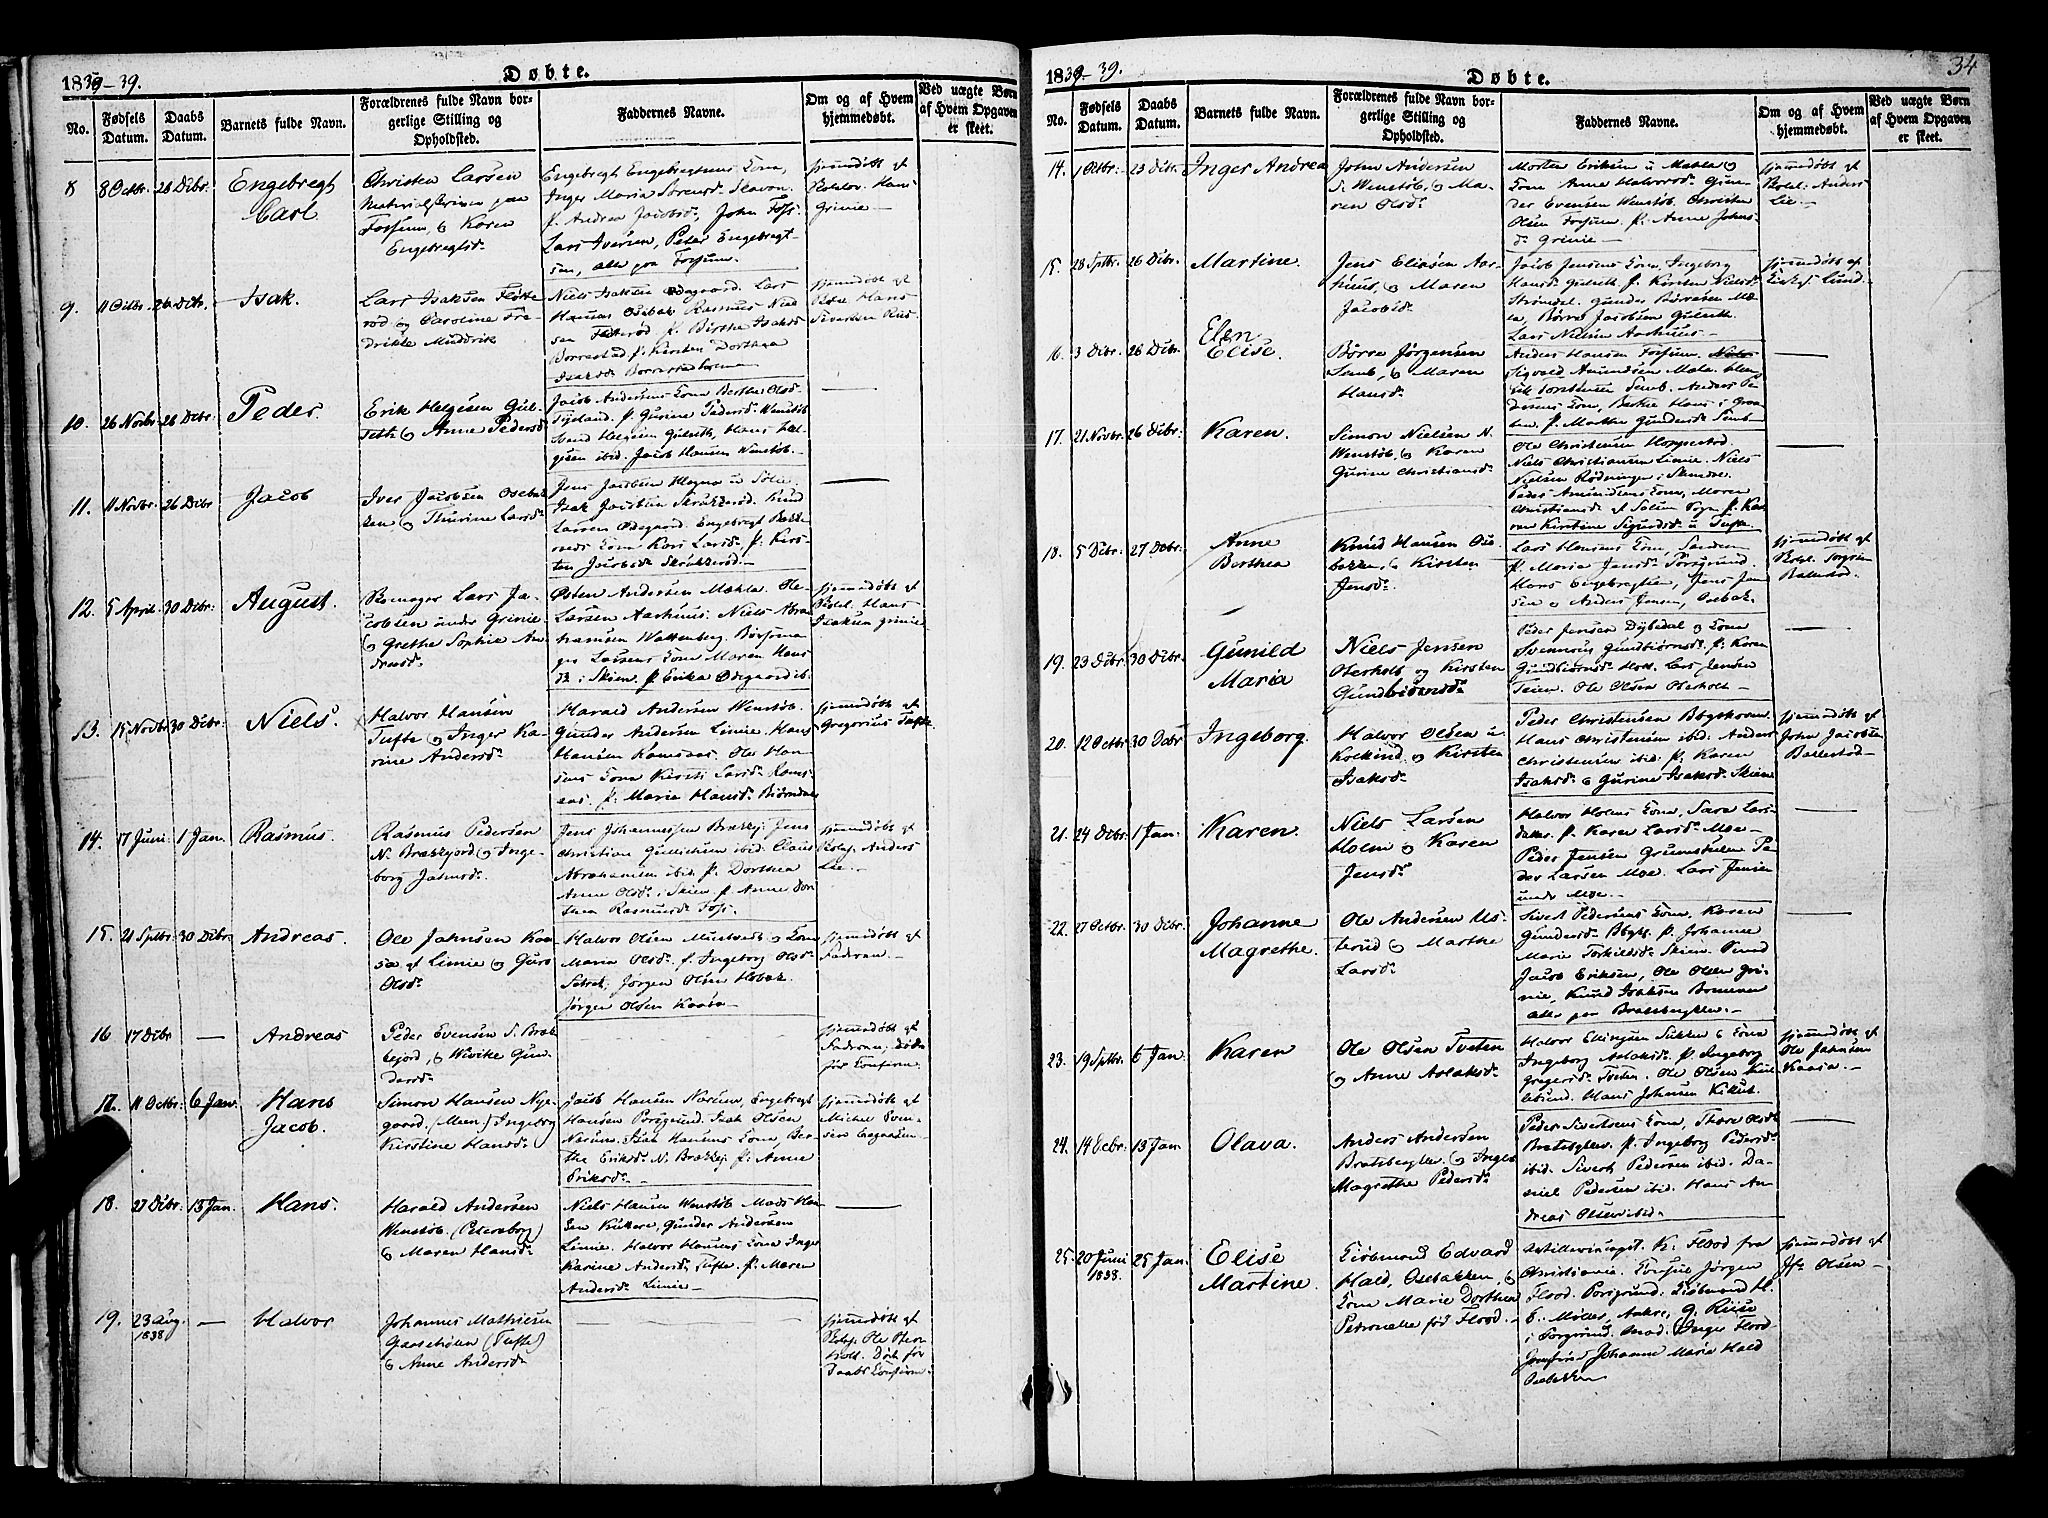 1839-39.
Døbte.
No.
Fødsels Datum.
Daabs Datum.
Barnets fulde Navn.
Forældrenes fulde Navn borgerlige Stilling og Opholdsted.
Faddernes Navne.
Om og af Hvem hjemmedøbt.
Ved uægte Børn af Hvem Opgaven er skeet.
8
8 Octbr.
26 Dcbr.
Engebregt
Carl
Christen Larsen
Fossum, & Karen
Engebregtsd:
Engebregt Engebregtsens Kone,
Inger Maria
p. Andrea Jacobsd:, John Foss.
Lars Iversen, Peter Engebregt-
sen, alle paa Fossum.
hjemmedøbt af
Grinie
9.
11 Octbr.
26 Dcbr.
Isak.
Lars Isaksen
rød og Caroline Fre-
drikke
Niels IsaksenØdegaard. Lars
Hansen Osebak Rasmus
p. Birthe Isaksd:
p. Kirsten Dorthea
hjemmedøbt af
Hans
Sivertsen Riis
10.
26 Novbr.
26 Dcbr.
Peder
Erik Helgesen Gul-
seth & Anne Pedersd:
Jacob Andersens Kone Berthe Olsd:
p. Gurine Pedersd: Wenstøb
Helgesen Gulseth, Hans Hel-
gesen ibid. Jacob Hansen Wenstøb.
11.
11 Novbr.
26 Dcbr
Jacob
Iver Jacobsen Osebak-
ken & Thurine Larsd:
Jens Jacobsen
Isak Jacobsen
Larsen Ødegaard. Engebregt
Kone Kari Larsd: p. Kirs-
ten Jacobsd:
12.
5 April.
30 Dcbr:
August.
Lars Ja-
cobsen under Grinie
& Grethe Sophie An-
dersd:
Østen Andersen Mæhla. Ole
Larsen Aarhuus. Niels Abra-
hamsen Wattenberg.
Larsens Kone Maren Hans-
d: i Skien. p. Erika Ødegaard ib.
hjemmedøbt af
Hans
Isaksen Grinie
13.
30 Dcbr:
Niels.
Halvor Hansen
Tufte & Inger Ka-
rine Andersd:
Harald Andersen Wenstøb.
Gunder Andersen Limie. Hans
Hansen Ramsaas. Ole Han-
sens Kone Kirsti Larsd: Rams-
aas. p. Maria Hansd: Biørndal
hjemmedøbt af
Gregorius Tufte
14.
17 Juni:
1 Jan.
Rasmus.
Rasmus Pedersen
N. Brækkejord & Inge-
borg
Jens Johannessen Brækkej. Jens
Christian Gullichsen ibid. Claus
Abrahamsen ibid. p. Dorthea
Anne Olsd: i Skien p. Anne Dor-
thea Rasmusd: Foss.
hjemmedøbt af
Anders
Lie.
15.
21 Sptbr.
30 Dcbr.
Andreas.
Ole Jahnsen Kaa-
sa af Limie & Guro
Olsd:
Halvor Olsen & Kone
Maria Olsd: p. Ingeborg Olsd:
Jørgen Olsen
Jørgen Olsen Kaasa
hjemmedøbt af
Faderen.
16
17 Dcbr
—
Andreas
Peder Evensen S. Bræk-
kejord, & Wivike Gun-
dersd:
hjemmedøbt af
Faderen, døde
før Confirm.
17.
11 Octbr.
6 Jan.
Hans
Jacob.
Simon Hansen Nye-
gaard (Moen) Ingeborg
Kirstine Hansd:
Jacob Hansen Narum, Engebregt
Hansen Porsgrund. Isak Olsen
Narum. Isak Hansens Kone, Ber-
the Eriksd: N. Brækkej. p. Anne
Eriksd:
hjemmedøbt af
Michel Even-
sen
18.
27 Dcbr.
13 Jan.
Hans.
Harald Andersen
Wenstøb. (Petersborg)
& Maren Hansd:
Niels Hansen Wenstøb. Mads Han-
sen Kikere, Gunder Andersen
Limie. Halvor Hansens Kone Inger
Karine Andersd: Tufte. p. Maren
Andersd: Limie.
19.
23 Aug.
1838
—
Halvor
Johannes Mathiesen
(Tufte)
& Anne Andersd:
hjemmedøbt af
Ole Oter-
holt. Død før
Daabs Confirm.
1839-39.
Døbte.
34
No.
Fødsels Datum.
Daabs Datum.
Barnets fulde Navn.
Forældrenes fulde Navn borgerlige Stilling og Opholdsted.
Faddernes Navne.
Om og af Hvem hjemmedøbt.
Ved uægte Børn af Hvem Opgaven er skeet.
14.
1 Octbr:
23 Dcbr.
Inger Andrea
John Andersen
S. Wenstøb, & Ma-
ren Olsd:
Morten Eriksen u. Mæhla &
Kone Anne Halvorsd: Gun-
der Evensen Wenstøb. Christen
Olsen Fossum. p. Anne Johns-
d: Grinie
hjemmedøbt af
Anders
Lie.
15.
28 Sptbr.
26 Dcbr.
Martine.
Jens Eliasen Aar-
huus, & Maren
Jacobsd:
Jacob Jensens Kone, Ingeborg
Hansd: Gulseth. p. Kirsten Nielsd:
Strømdal. Gunder Børresen Mæ-
la, Børre Jacobsen Gulseth.
Lars Nielsen Aarhuus
hjemmedøbt af
Lund
16.
3 Dcbr.
26 Dcbr.
Elen
Elise.
Børre Jørgensen
Semb, & Maren
Hansd:
Anders Hansen Fossum.
Sigvald Amundsen
Torstensen Semb. Anders Pe-
dersens Kone, Berthe Hans
p. Marthe Gundersd: Semb
17.
21 Novbr.
26 Dcbr:
Karen.
Simon Nielsen N.
Wenstøb, & Karen
Gurine Christiansd:
Ole Christensen Hoppestad.
Niels Christiansen Limie. Niels
Nielsen Rødninger i Skien.
Peder Amundsens Kone, Maren
Christiansd: af Solum Sogn p. Ka-
ren Kirstine Sigurdsd: u. Tufte.
18.
5 Dcbr:
27 Dcbr:
Anne
Berthea
Knud Hansen Ose-
bakken, & Kirsten
Jensd:
Lars Hansens Kone,
p. Maria Jensd: Porsgrund.
Hans Engebregtsen, Jens Jen-
sen & Anders Jensen, Osebak.
hjemmedøbt af
Ballestad.
19.
23 Dcbr:
30 Dcbr.
Gunild
Maria
Niels Jensen
Oterholt og Kirsten
Gundbiørnsd:
Peder Jensen Dybedal & Kone
Gundbiørnsd: p. Karen
Gundbiørnsd: Holt. Lars Jensen
Teien. Ole Olsen Oterholt
20.
12 Octbr
30 Dcbr
Ingeborg.
Halvor Olsen u.
Kolkind, & Kirsten
Isaksd:
Peder Christensen
Hans Christensen ibid. Anders
Christensen ibid. p. Karen
Isaksd: & Gurine Isaksd: Skien
hjemmedøbt af
John Jacobsen
Ballestad
21.
24 Dcbr:
1 Jan:
Karen.
Niels Larsen
Holm & Karen
Jensd:
Halvor Holms Kone, Sara Lars-
datter. p. Karen Larsd: Moe
Peder Jensen Grumstulen. Pe-
der Larsen Moe. Lars Jensen
under Moe
22.
27 Octbr.
30 Dcbr.
Johanne
Magrethe.
Ole Andersen Us-
terud & Marthe
Larsd:
Sivert Pedersens Kone, Karen
Gundersd: p. Johanne
Marie Torkildsd: Skien.
Jacob Eriksen, Ole Olsen Gri-
nie, Knud Isaksen
alle paa Bratsbergklev.
23.
19 Sptbr.
6 Jan.
Karen
Ole Olsen Tveten
& Anne Aslaksd:
Halvor Ellingsen & Kone
Ingeborg Aslaksd: p. Ingeborg
Gregersd: Tveten. Ole Olsen
Hans Johnsen
hjemmedøbt af
Ole Jahnsen
Kaasa.
24.
14 Dcbr:
13 Jan
Olava.
Anders Andersen
Bratsbergklev. & Inger
Magrethe Pedersd:
Peder Sivertsens Kone, Thora Olsd:
Bratsbgklev p. Ingeborg Pedersd:
ibid. Sivert Pedersen ibid. Da-
niel Pedersen ibid. Hans An-
dreas Olsen ibid.
25.
20 Juni
1838.
25 Jan.
Elise
Martine.
Edvard
Hald, Osebakken, &
Kone Marie Dorthea
Petronelle fød Flood.
K: Flood fra
Christiania. Consul Jørgen
Flood. Porsgrund. H.
E. Møller, G. Riise
i Porsgrund. Mad. Inger Flood
Jomfrue Johanne Maria Hald
Osebakken
hjemmedøbt af
Jfr. Olsen